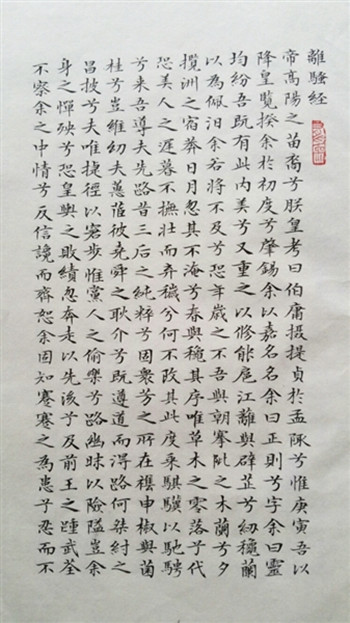 離騷經
帝高陽之苗裔兮朕皇考曰伯庸攝提貞於孟陬兮惟庚寅吾以
降皇覽揆余於初度兮肇錫余以嘉名名余曰正則兮字余曰靈
均紛吾既有此內美兮又重之以修能扈江離與辟芷兮紉穐蘭
以為佩汩余若將不及兮恐年歲之不吾與朝搴阰之木蘭兮夕
攬洲之宿莽日月忽其不淹兮春與穐其序唯草木之零落兮代
恐美人之遲暮不撫壯而弃穢兮何不改其此度乘騏驥以馳騁
兮来吾導夫先路昔三后之純粹兮固衆芳之所在襍申椒與菌
桂兮豈維紉夫蕙茝彼堯舜之耿介兮既遵道而得路何桀紂之
昌披兮夫唯捷徑以窘步惟黨人之偷樂兮路幽昧以險隘豈余
身之憚殃兮恐皇輿之敗績忽奔走以先後兮及前王之踵武荃
不察余之中情兮反信讒而齊怒余固知謇謇之為患兮忍而不